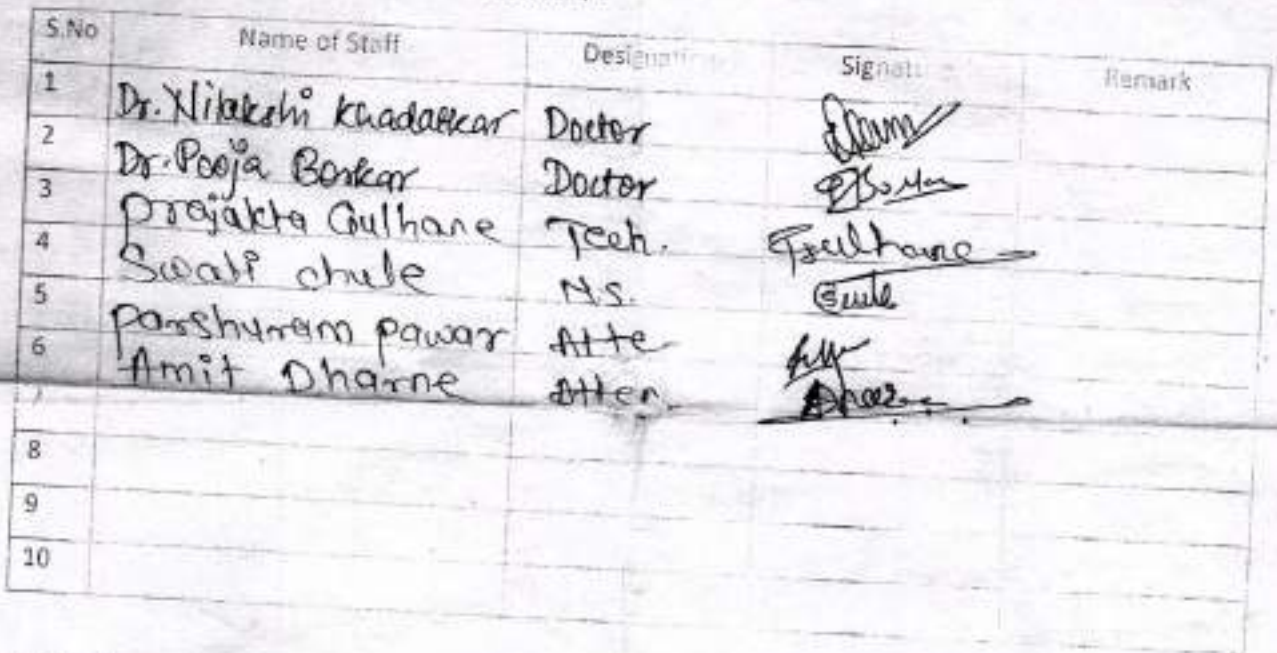 S.No Name of Staff Designation Signature Remark
1 Dr. Nilakshi Khadatkar Doctor
2 Dr. Pooja Borkar Doctor
3 Prajakta Gulhane Tech. Gulhane
4 Swati chule N.S.
5 Parshuram Pawar Atte
6 Amit Dharne Atten.
7
8
9
10